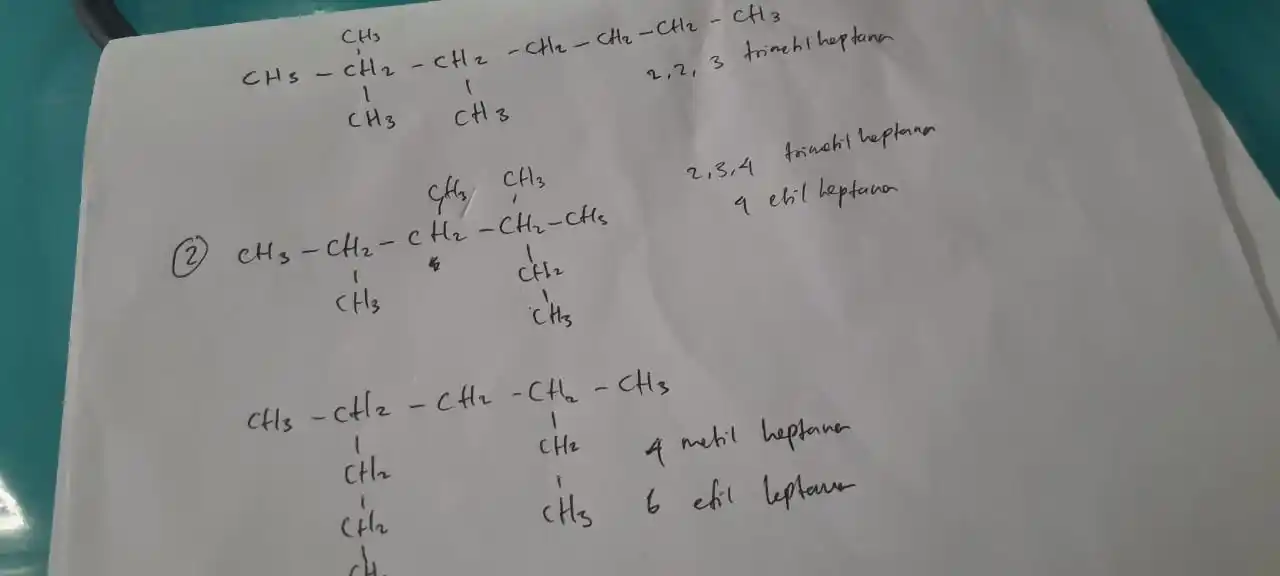 CH3
CH3 - CH2 - CH2 - CH2 - CH2 - CH2 - CH3
CH3 CH3
2,2,3 trimetil heptana
2,3,4 trimetil heptana
4 etil heptana
CH3 CH3
② CH3 - CH2 - CH2 - CH2 - CH3
4
CH3 CH2
CH3
CH3 - CH2 - CH2 - CH2 - CH3
CH2 CH2
CH2 CH3
4 metil heptana
6 etil heptana